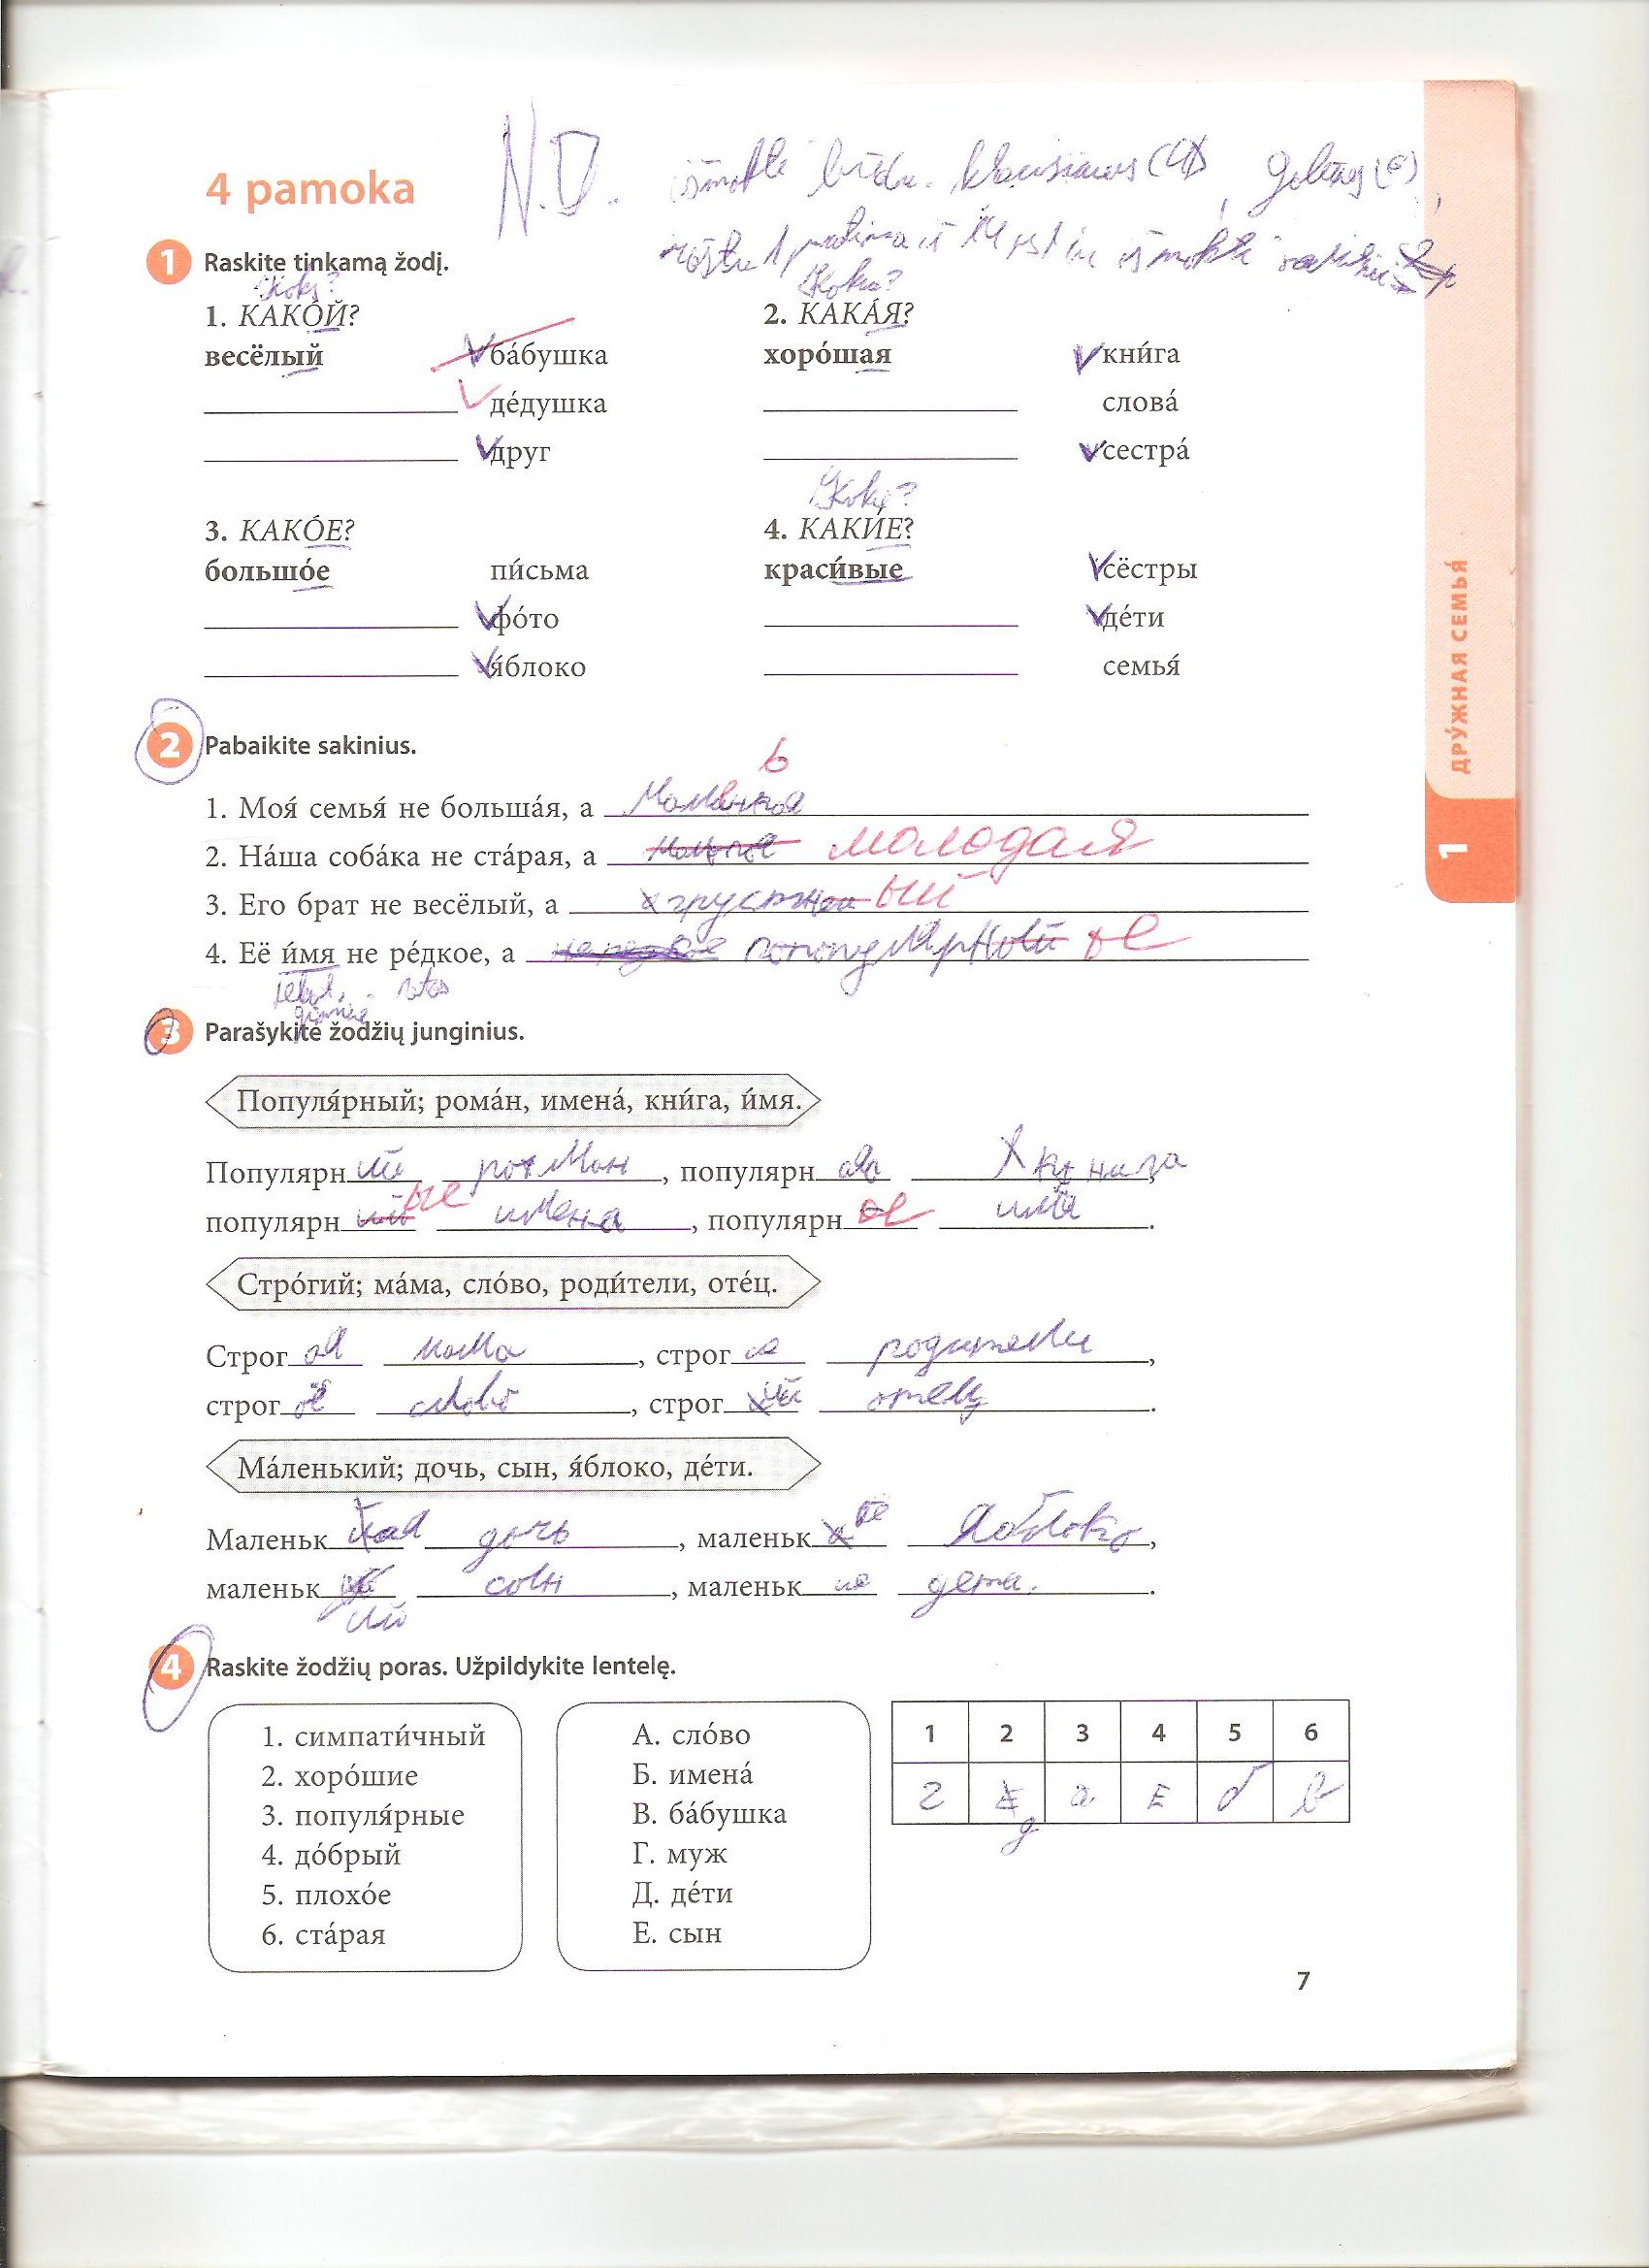 4 pamoka N.D. išmokti būdv. klausimus (4), galūnes (6),
1 Raskite tinkamą žodį.
Koks? Kokia?
1. КАКО́Й? 2. КАКА́Я?
весёлый ба́бушка хоро́шая кни́га
де́душка слова́
друг сестра́
Kokie?
3. КАКО́Е? 4. КАКИ́Е?
большо́е пи́сьма краси́вые сёстры
фо́то де́ти
я́блоко семья́
2 Pabaikite sakinius.
ь
1. Моя́ семья́ не больша́я, а маленкая
2. На́ша соба́ка не ста́рая, а молодая
3. Его брат не весёлый, а грустный
4. Её и́мя не ре́дкое, а ое
retas
3 Parašykite žodžių junginius.
Популя́рный; рома́н, имена́, кни́га, и́мя.
Популярн ий роман, популярн ая книга,
популярн ые имена, популярн ое имя.
Стро́гий; ма́ма, сло́во, роди́тели, оте́ц.
Строг ая мама, строг ие родители,
строг ое слово, строг ий отец.
Ма́ленький; дочь, сын, я́блоко, де́ти.
Маленьк ая дочь, маленьк ое яблоко,
маленьк сын, маленьк ие дети.
ий
4 Raskite žodžių poras. Užpildykite lentelę.
1. симпати́чный А. сло́во 1 2 3 4 5 6
2. хоро́шие Б. имена́ г д а Е б в
3. популя́рные В. ба́бушка
4. до́брый Г. муж
5. плохо́е Д. де́ти
6. ста́рая Е. сын
7
ДРУ́ЖНАЯ СЕМЬЯ́
1